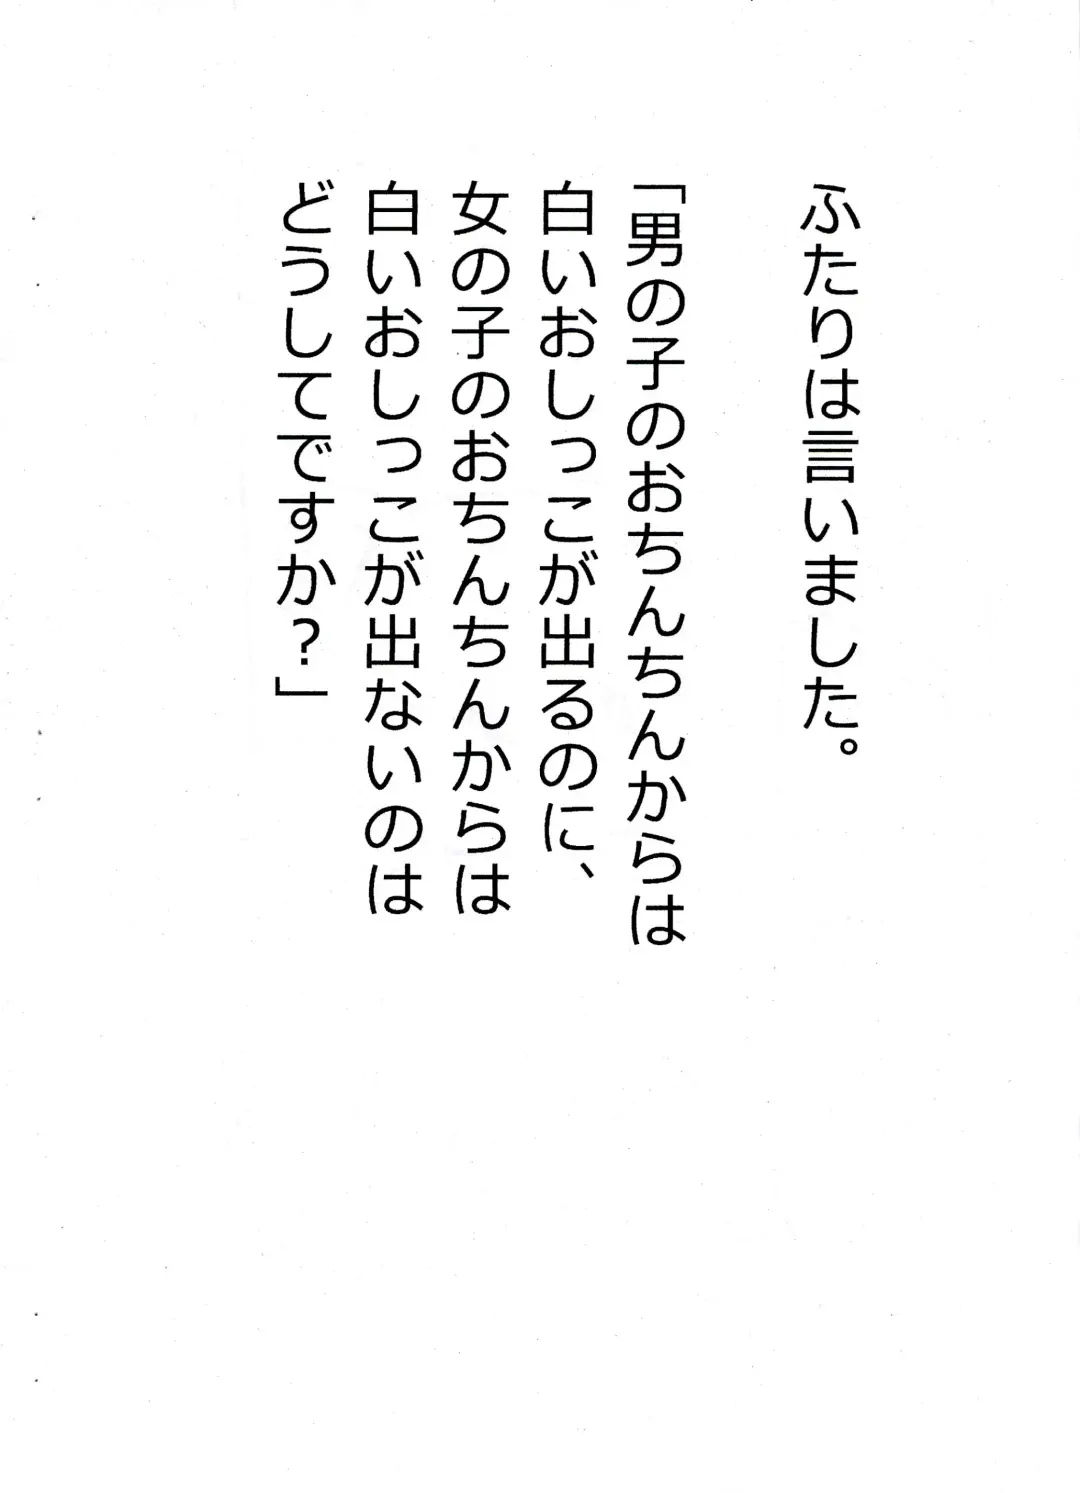 ふたりは言いました。
「男の子のおちんちんからは
白いおしっこが出るのに、
女の子のおちんちんからは
白いおしっこが出ないのは
どうしてですか?」